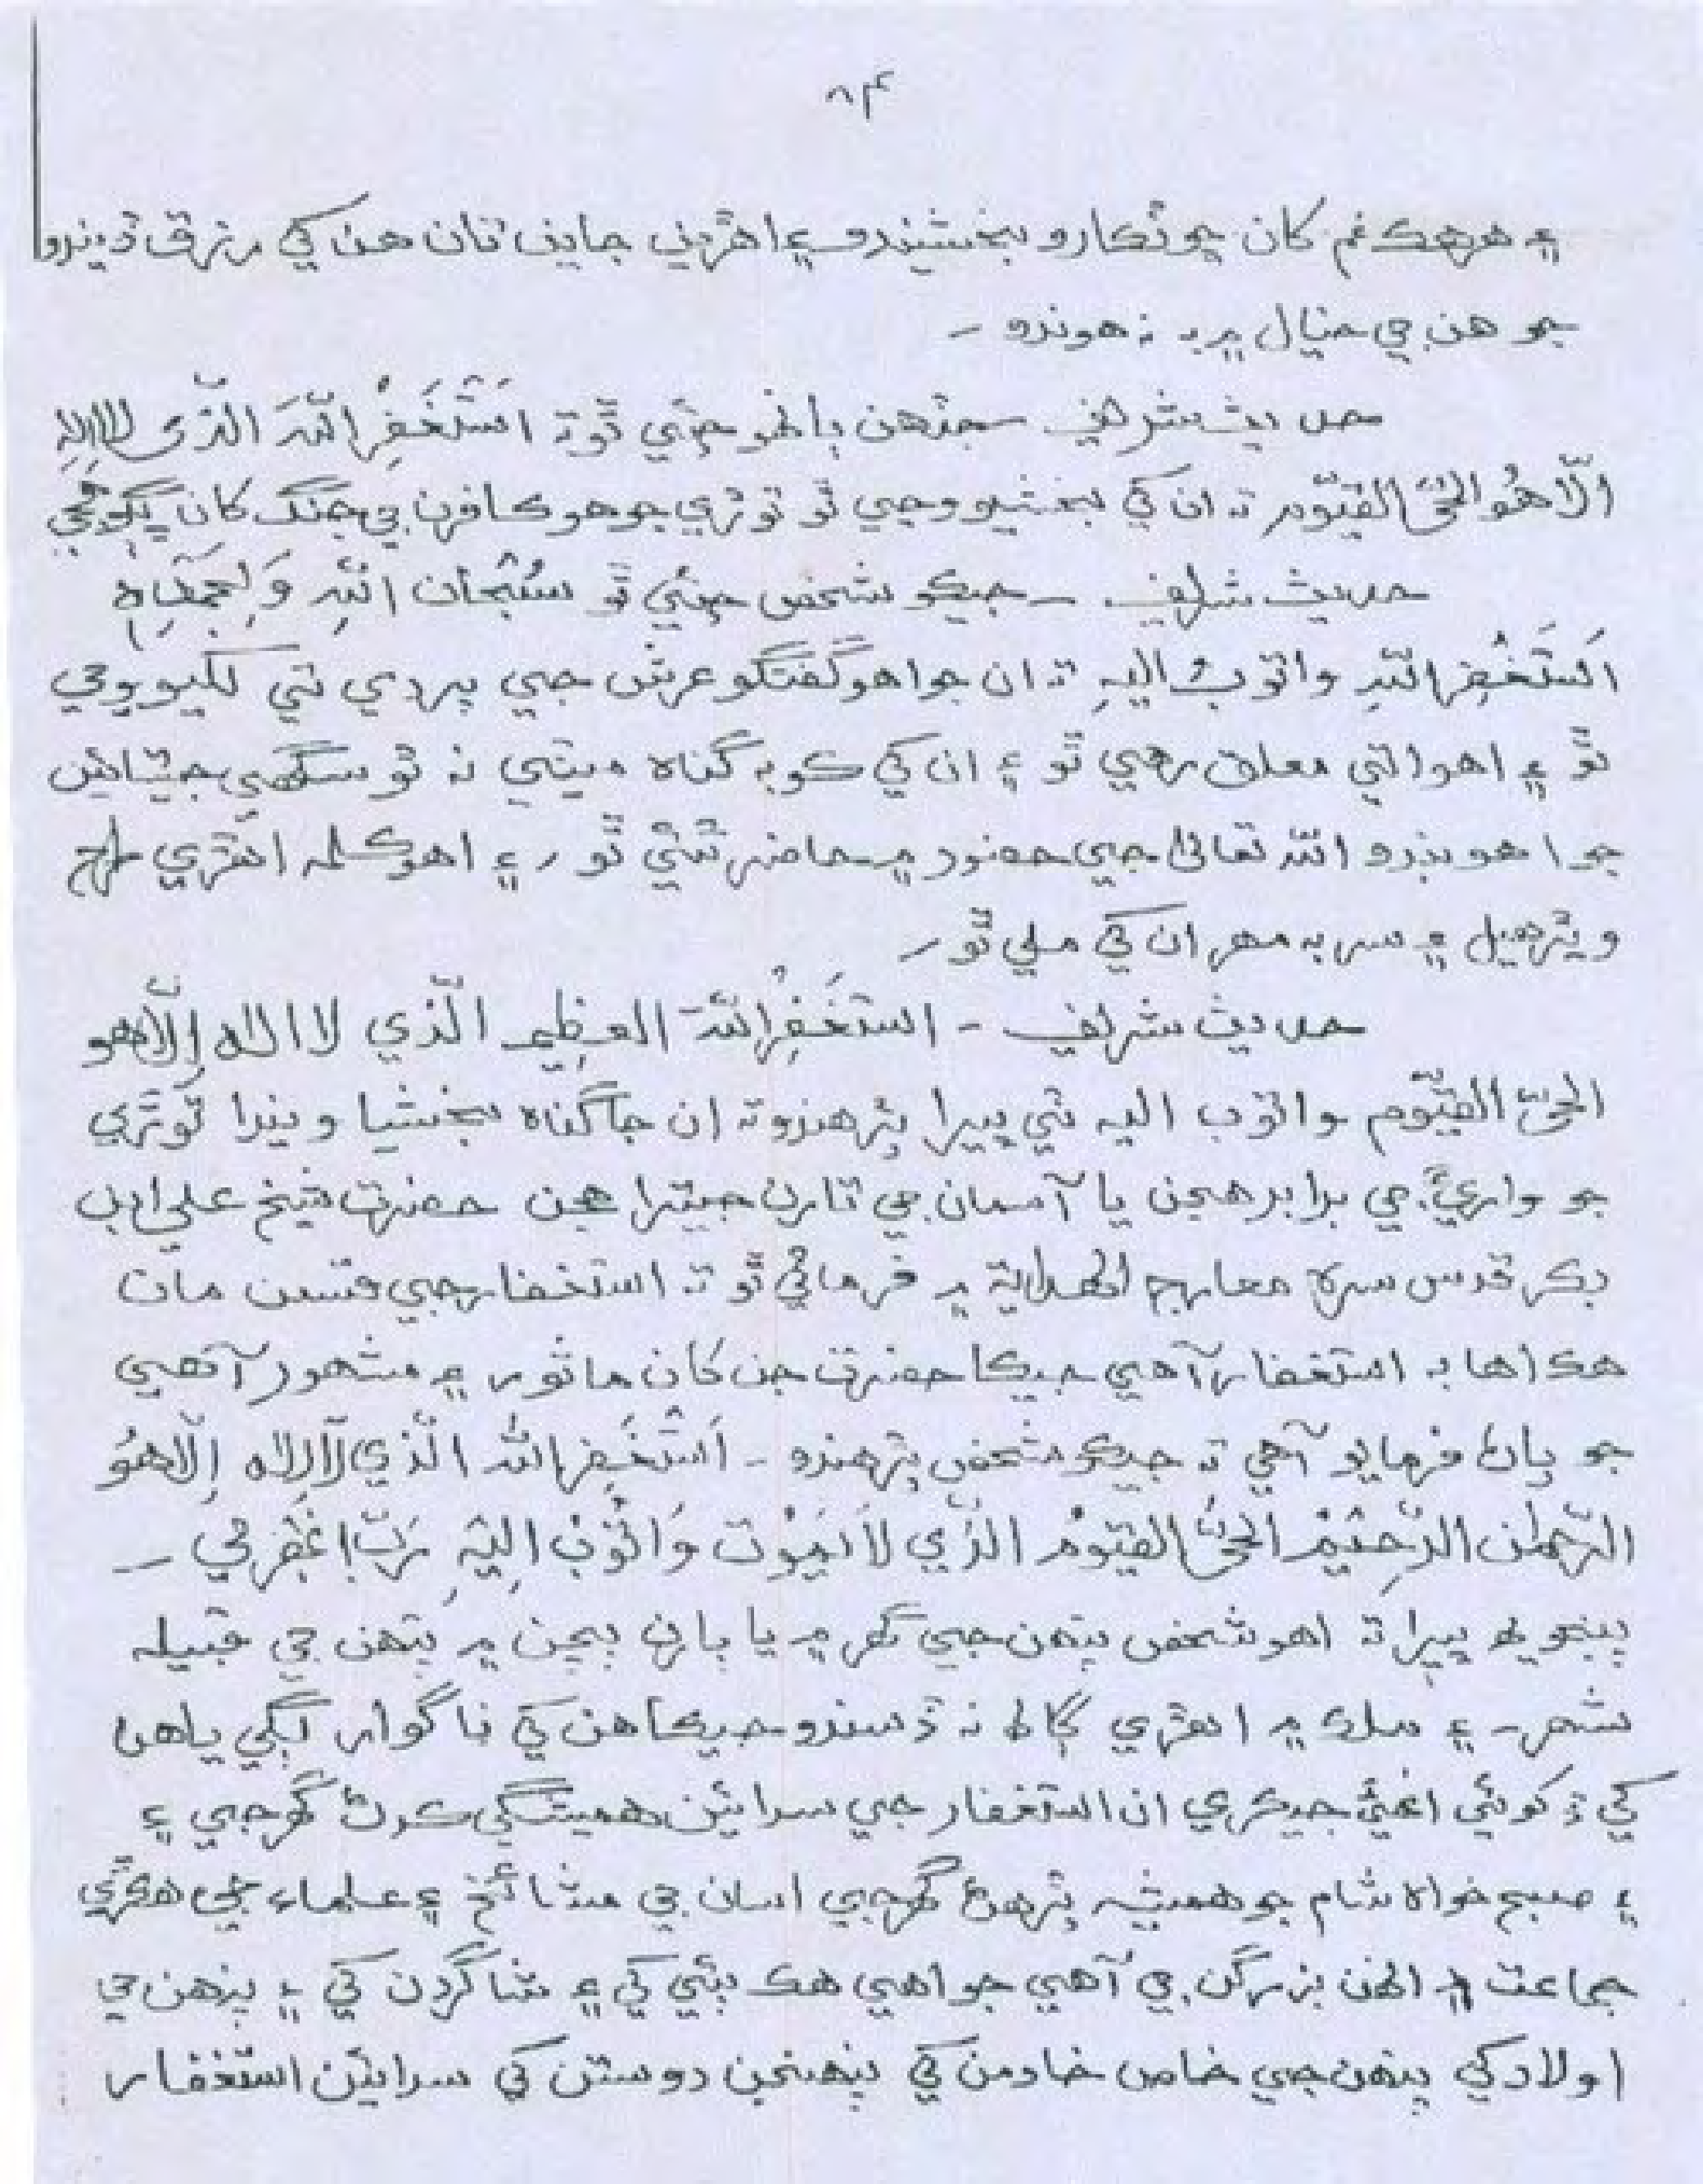 ۸۴
۽ هر هڪ غم کان ڇوٽڪارو بخشيندو ۽ اهڙين جاين تان هن کي رزق ڏيندو
جو هن جي خيال ۾ به نه هوندو ـ
حديث شريف ـ جڏهن ٻانهو چئي ٿو ته اَسْتَغْفِرُ اللّٰهَ الَّذی لا اِلٰهَ
اِلّا هُوَ الحَیُّ القَیّوم ته ان کي بخشيو وڃي ٿو توڙي جو هو ڪافرن جي جنگ کان ڀڳو هجي
حديث شريف ـ جيڪو شخص چئي ٿو سُبْحَانَ اللّٰهِ وَ بِحَمْدِهٖ
اَستَغْفِرُ اللّٰہَ واتوبُ اليهِ ته ان جو اهو گفتگو عرش جي پردي تي لکيو وڃي
ٿو ۽ اهو اتي معلق رهي ٿو ۽ ان کي ڪو به گناه ميٽي نه ٿو سگهي جيتائين
جو اهو بندو اللّٰه تعالیٰ جي حضور ۾ حاضر ٿئي ٿو ـ ۽ اهو ڪلمه اهڙي طرح
ويڙهيل ۽ سر به مهر ان کي ملي ٿو ـ
حديث شريف ـ استَغْفِرُ اللّٰهَ العظِيم الّذي لا اله اِلّا هو
الحیّ القيّوم واتوب اليه ٽي ڀيرا پڙهندو ته ان جا گناه بخشيا ويندا توڙي
جو واريءَ جي برابر هجن يا آسمان جي تارن جيترا هجن حضرت شيخ علي ابن
بڪر قدس سره معارج الهداية ۾ فرمائي ٿو ته استغفار جي قسمن مان
هڪ اها به استغفار آهي جيڪا حضرت جن کان ماثور ۽ مشهور آهي
جو پاڻ فرمايو آهي ته جيڪو شخص پڙهندو ـ اَسْتَغْفِرُ اللّٰه الّذي لَآ اِلٰه اِلّا هُوَ
الرّحمٰن الرّحِيْمُ الحیُّ القيّومُ الّذي لاَ يَمُوْتُ وَ اَتُوْبُ اِليْهِ رَبِّ اغْفِرلي ـ
پنجويه ڀيرا ته اهو شخص پنهن جي گهر ۾ يا ٻارن ٻچن ۾ پنهن جي قبيله
شهر ۽ ملڪ ۾ اهڙي ڳالھ نه ڏسندو جيڪا هن کي ناگوار لڳي يا هن
کي ڏکوئي اِنهيءَ جيڪري ان استغفار جي سدائين هميشگي ڪرڻ گهرجي ۽
۽ صبح خواه شام جو هميشه پڙهڻ گهرجي اسان جي مشائخ ۽ علماء جي هڪڙي
جماعت انهن بزرگن جي آهي جو اهي هڪ ٻئي کي ۽ شاگردن کي ۽ پنهن جي
اولاد کي پنهن جي خاص خادمن کي پنهنجن دوستن کي سدائين استغفار